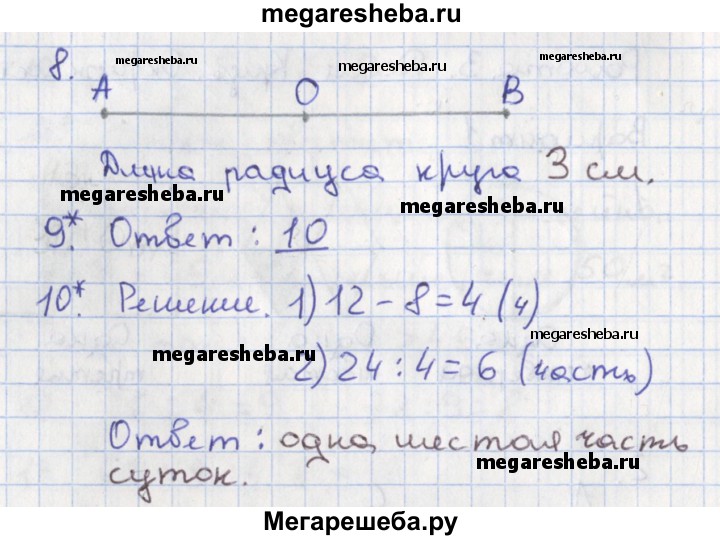 megaresheba.ru
8. megaresheba.ru megaresheba.ru megaresheba.ru
A O B
Длина радиуса круга 3 см.
megaresheba.ru megaresheba.ru
9*. Ответ: 10
10*. Решение. 1) 12 - 8 = 4 (ч)
megaresheba.ru megaresheba.ru
2) 24 : 4 = 6 (часть)
Ответ: одна шестая часть
суток. megaresheba.ru
Мегарешеба.ру